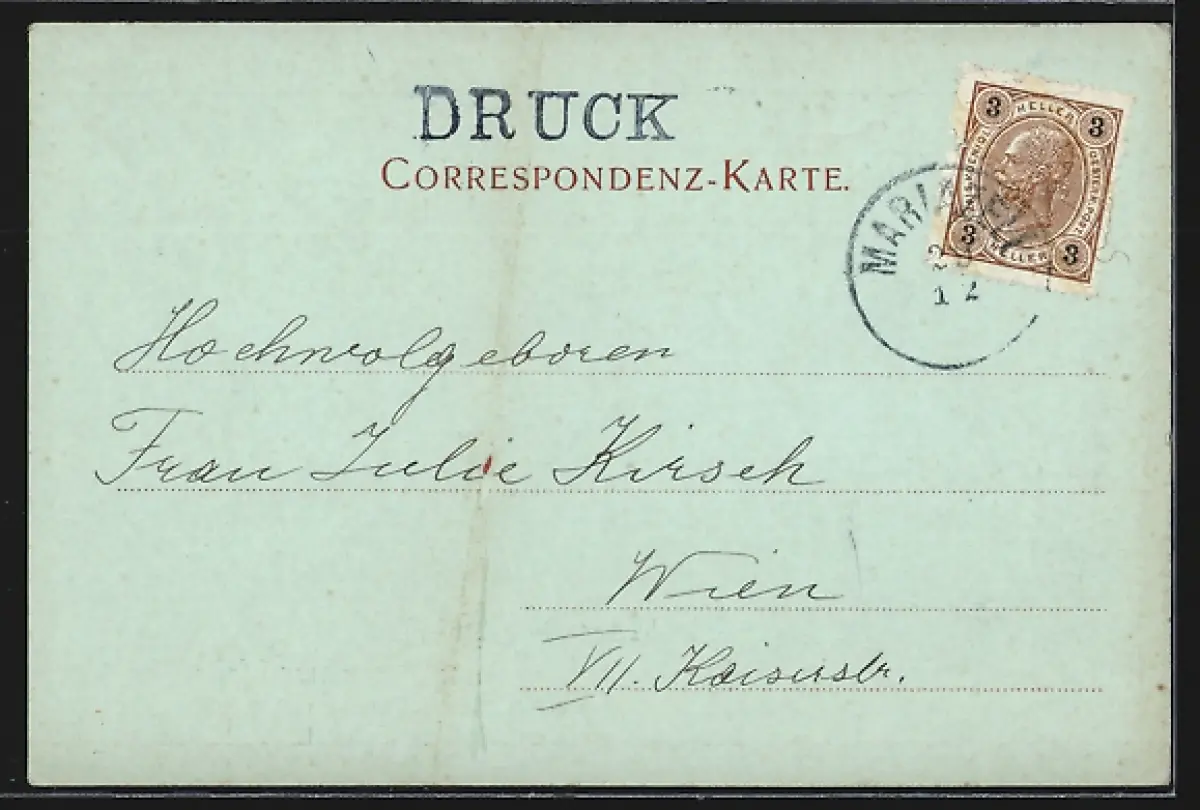 DRUCK
CORRESPONDENZ-KARTE.
3 HELLER 3
3 HELLER 3
MARIA
12
Hochwolgeboren
Frau Julie Kirsch
Wien
VII. Kaiserstr.